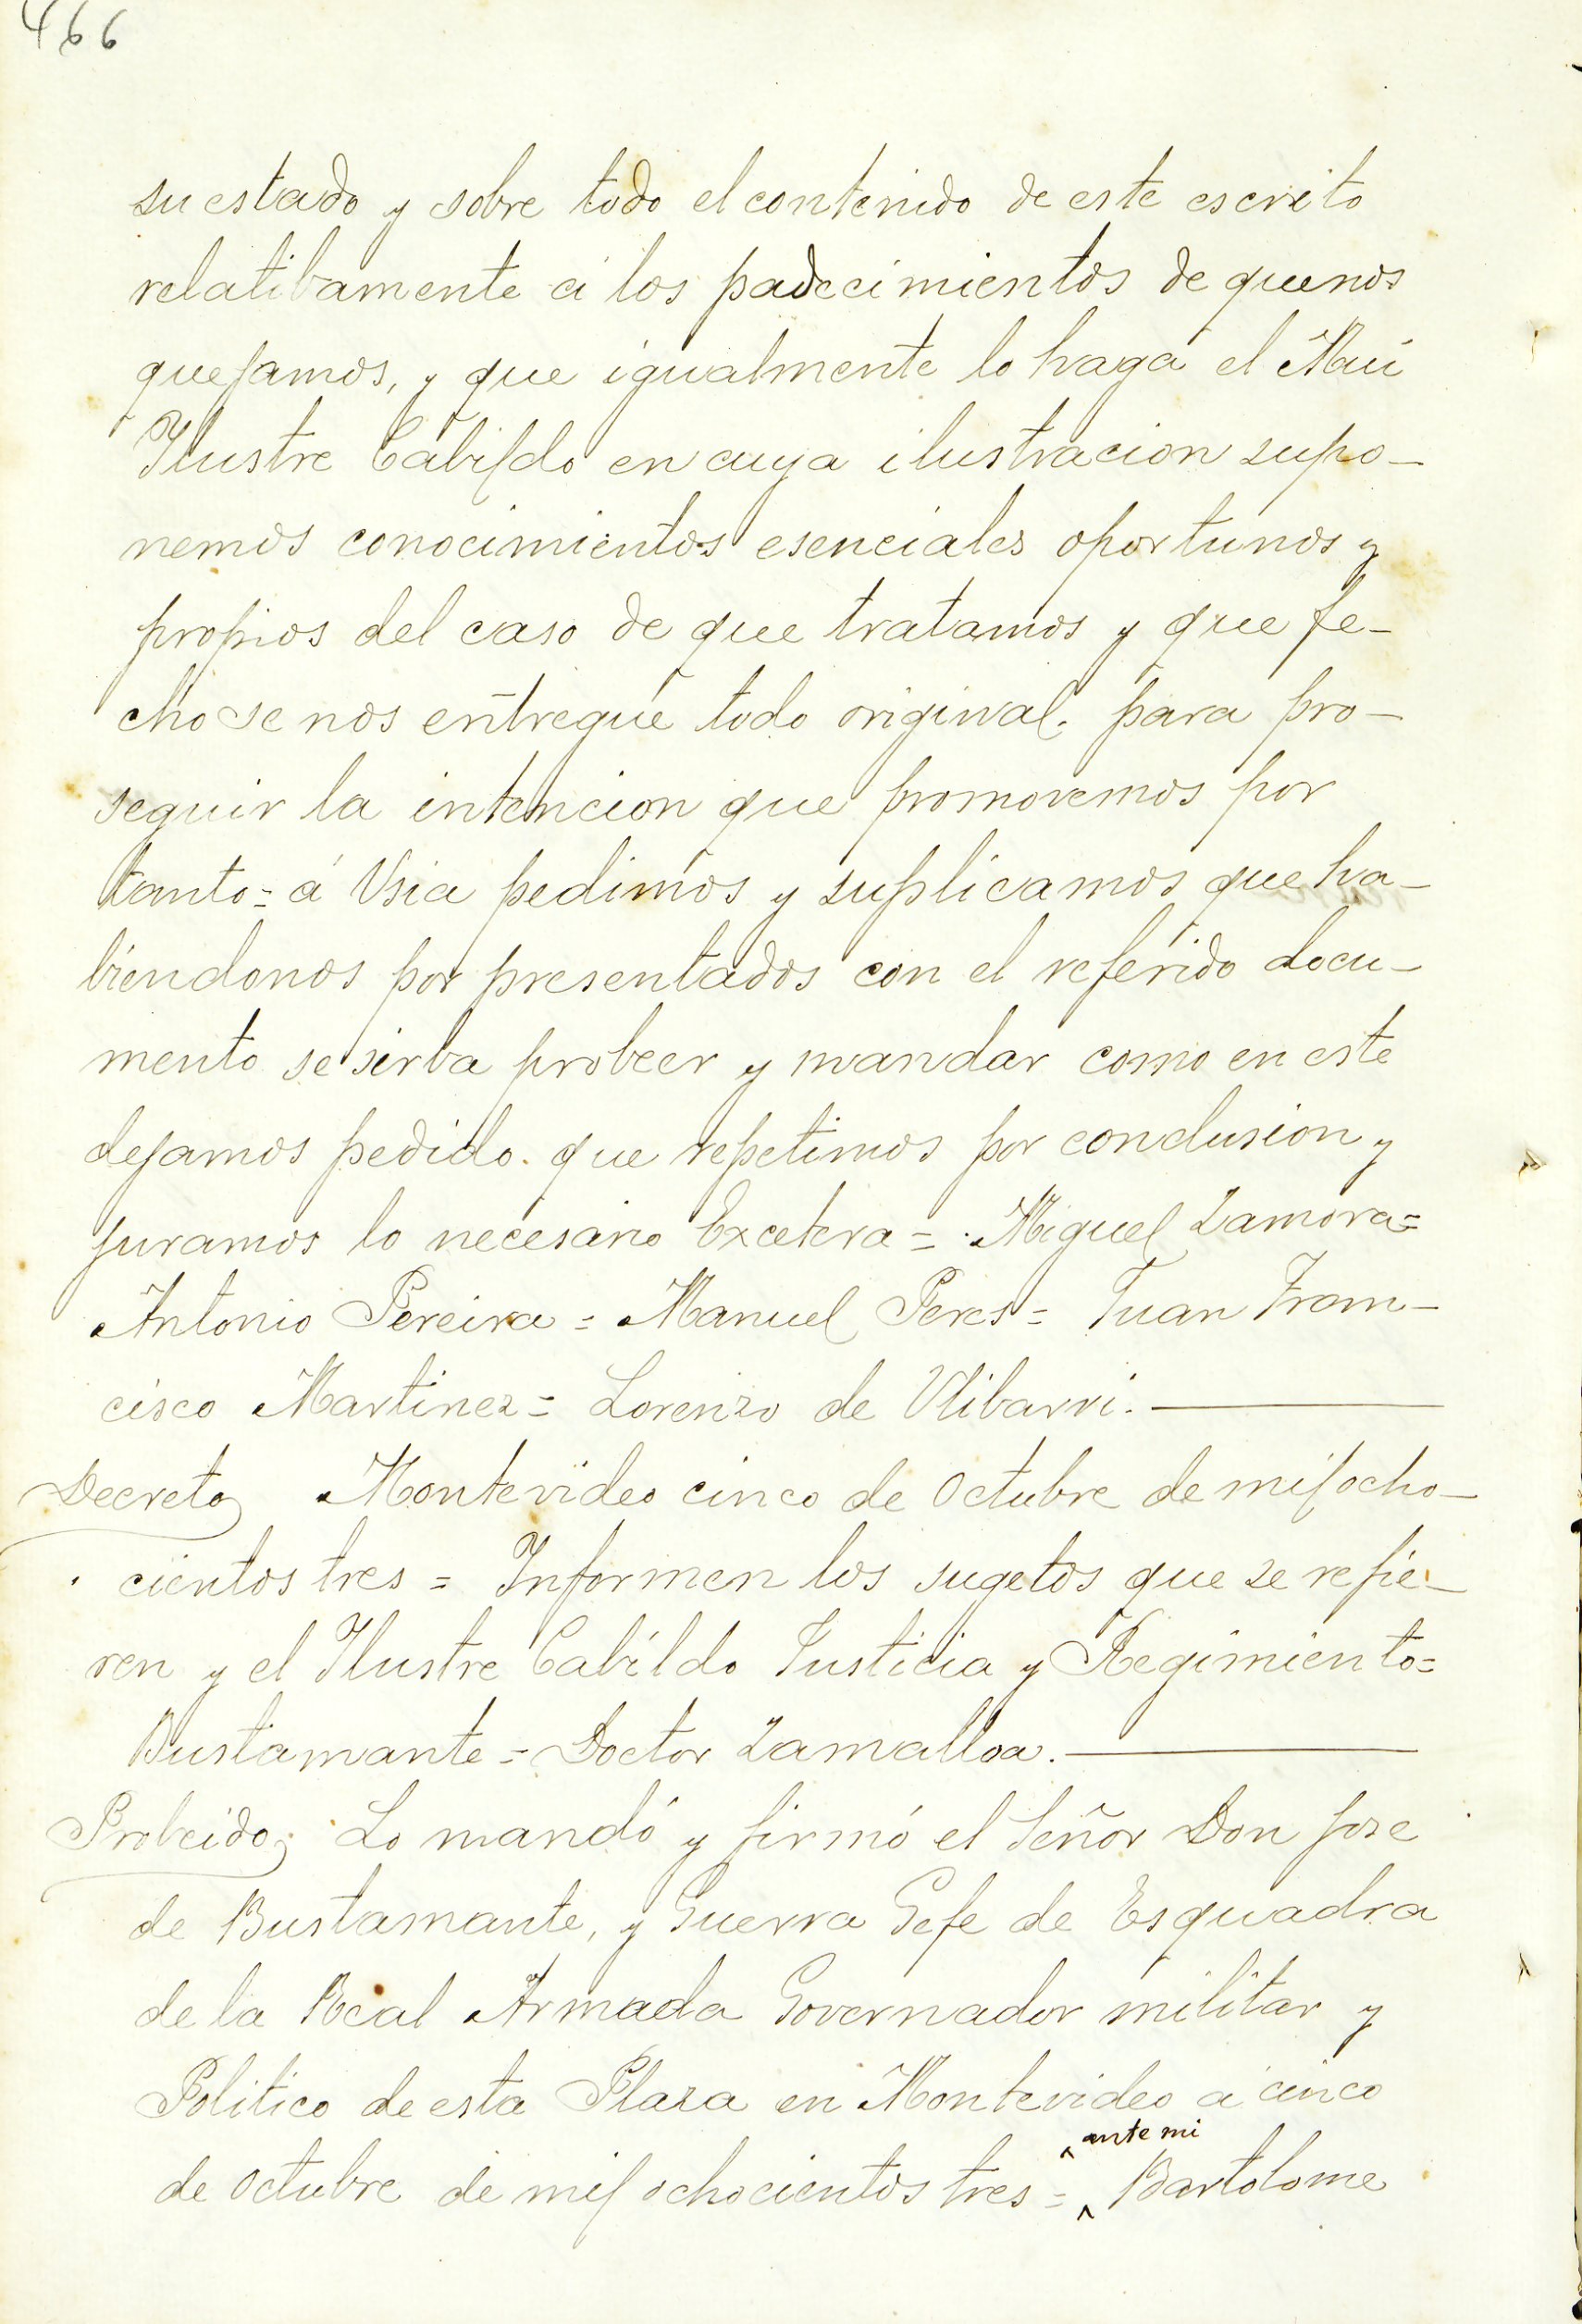 466
su estado y sobre todo el contenido de este escrito
relatibamente á los padecimientos de quenos
quejamos, y que igualmente lo haga el Mui
Ylustre Cabildo en cuya ilustracion supo-
nemos conocimientos esenciales oportunos y
propios del caso de que tratamos y que fe-
cho se nos entregue todo original. para pro-
seguir la intencion que promovemos por
tanto = á Vsia pedimos y suplicamos que ha-
biendonos por presentados con el referido docu-
mento se sirba probeer y mandar como en este
dejamos pedido. que repetimos por conclusion y
juramos lo necesario Excetera = Miguel Zamora =
Antonio Pereira = Manuel Peres = Juan Fran-
cisco Martinez = Lorenzo de Vlibarri.
Decreto Montevideo cinco de Octubre de mil ocho-
cientos tres = Informen los sugetos que se refie-
ren y el Ylustre Cabildo Justicia y Regimiento =
Bustamante = Doctor Zamalloa.
Probeido Lo mandó y firmó el Señor Don Jose
de Bustamante, y Guerra Gefe de Esquadra
de la Real Armada Governador militar y
Politico de esta Plaza en Montevideo á cinco
ante mi
de Octubre de mil ochocientos tres = Bartolome